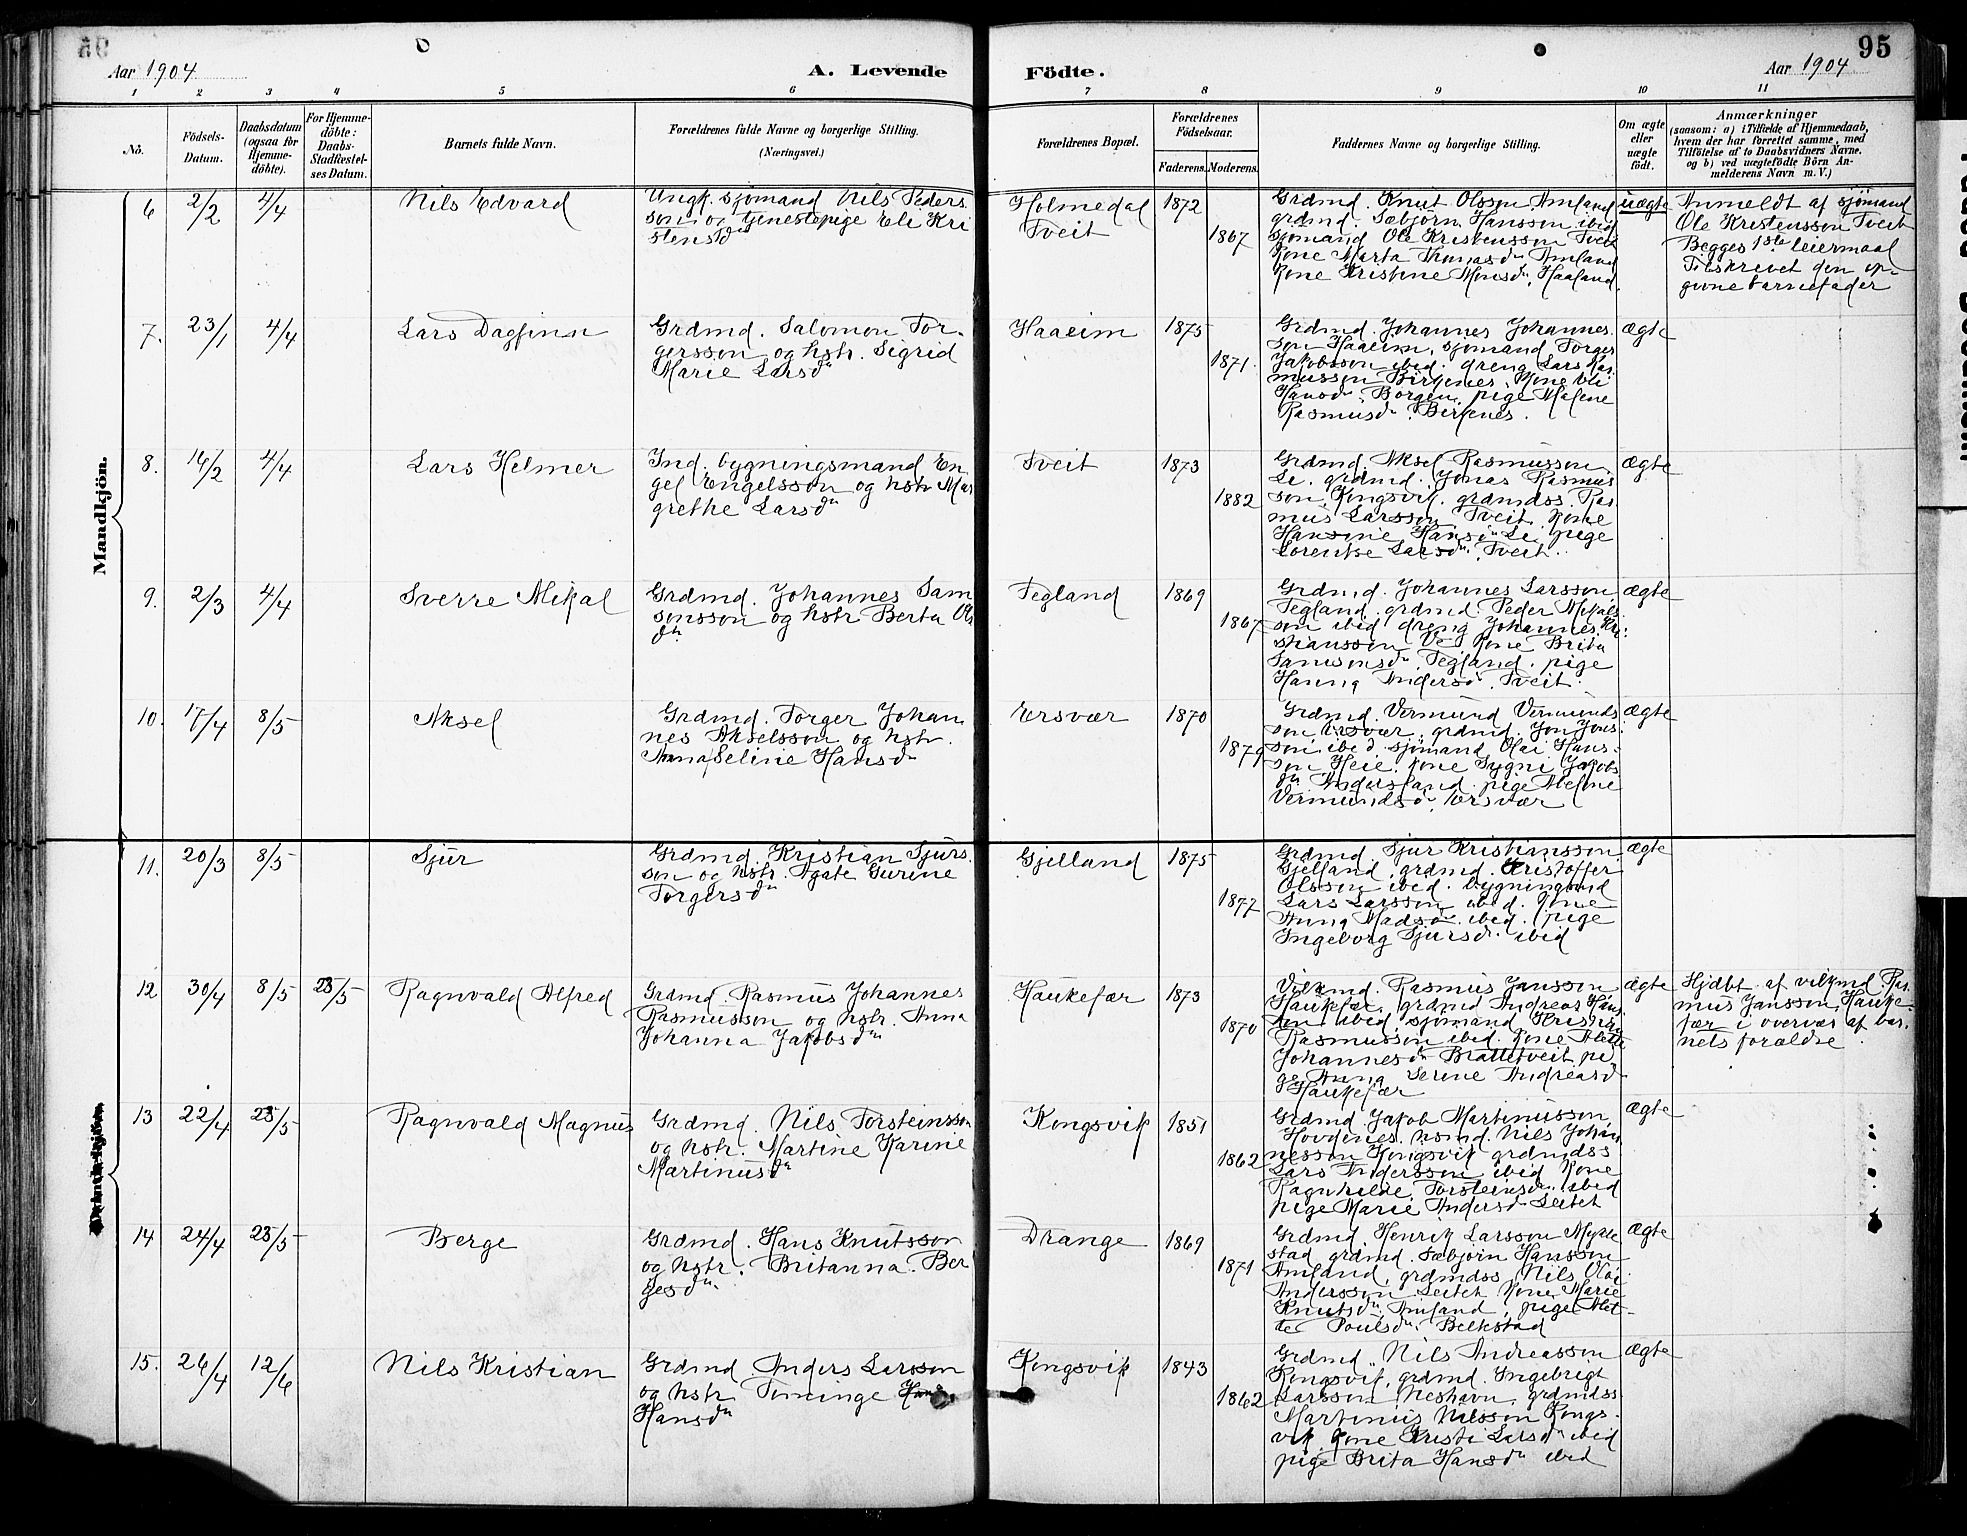 95
Aar 1904
A. Levende Födte.
Aar 1904
1 2 3 4 5 6 7 8 9 10 11
No.
Födsels-Datum.
Daabsdatum (ogsaa for Hjemme-döbte).
For Hjemme-döbte: Daabs-Stadfæstel-ses Datum.
Barnets fulde Navn.
Forældrenes fulde Navne og borgerlige Stilling.
(Næringsvei.)
Forældrenes Bopæl.
Forældrenes Födselsaar.
Faderens. Moderens.
Faddernes Navne og borgerlige Stilling.
Om ægte eller uægte födt.
Anmærkninger
(saasom: a) i Tilfælde af Hjemmedaab,
hvem der har forrettet samme, med
Tilföielse af to Daabsvidners Navne.
og b) ved uægtefödte Börn An-
melderens Navn m. V.)
Mandkjön.
6 2/2 4/4 Nils Edvard
Ungk. sjømand Nils Peders
son og tjenestepige Eli Kri
stensdn
Holmedal
Tveit
1872
1867
Grdmd. Knut Olsson Amland
grdmd. Sæbjørn Hansson ibid
sjømand Ole Kristensson Tveit
Kone Marta Thomasdn Amland
Kone Kristine Monsdn, Haaland.
uægte
Anmeldt af sjømand
Ole Kristensson Tveit
Begges 1ste leiermaal
Tilskrevet den op-
givne barnefader
7. 23/1 4/4 Lars Dagfinn
Grdmd. Salomon Tor-
gersson og hstr. Sigrid
Marie Larsdn
Haaeim
1875
1871.
Grdmd. Johannes Johannes
son Haaeim, sjømand Torger
Jakobsson ibid. dreng Lars Ras
mussen Birkenes, Kone Eli
Hansdn. Borgen. pige Malene
Rasmusdn. Birkenes.
ægte
8. 14/2 4/4 Lars Helmer
Ind. bygningsmand En
gel Engelsson og hstr Mar
grethe Larsdn
Tveit
1873
1882
Grdmd. Aksel Rasmusson
Le. grdmd. Jonas Rasmus
son, Kongsvik. grdmdss. Ras
mus Larsson Tveit. Kone
Hansine Hansdn Le, pige
Lorentse Larsdn. Tveit.
ægte
9. 2/3 4/4 Sverre Mikal
Grdmd. Johannes Sam
sonsson og hstr Berta Ols
dn
Tegland
1869
1867
Grdmd. Johannes Larsson
Tegland. grdmd. Peder Mikals
son ibid dreng Johannes Kri-
stiansson Ve Kone Brita
Samsonsdn. Tegland. pige
Hanna Andersdn. Tveit.
ægte
10. 17/4 8/5 Aksel
Grdmd. Torger Johan
nes Akselsson og hstr.
Anna Seline Hansdn
Ersvær
1870
1879
Grdmd. Vermund Vermunds
son Ersvær, grdmd. Jon Jons-
son, ibid. sjømand Olai Hans-
son Heie. Kone Sygni Jakobs
dn Andersland. pige Helene
Vermundsdn. Ersvær
ægte
11. 20/3 8/5 Sjur
Grdmd. Kristian Sjurs
son og hstr. Agate Gurine
Torgersdn
Gjelland
1875
1877
Grdmd. Sjur Kristiansson
Gjelland, grdmd. Kristoffer
Olsson ibid. bygningmd
Lars Larsson, ibid. Kone
Anna Madsdn. ibid. pige
Ingeborg Sjursdn. ibid
ægte
12 30/4 8/5 23/5 Ragnvald Alfred
Grdmd. Rasmus Johannes
Rasmusson og hstr. Anna
Johanna Jakobsdn
Haukefær
1873
1870
Vilkmd. Rasmus Jansson
Haukefær, grdmd Andreas Hans
son ibid, sjømand Kristian
Rasmusson ibid. Kone Alette
Johannesdn Brattetveit pi
ge Anna Serine Andreasdn
Haukefær
ægte
Hjdbt. af vilkmd. Ras
mus Jansson, Hauke-
fær i overvær af bar-
nets forældre.
13 22/4 23/5 Ragnvald Magnus
Grdmd. Nils Torsteinsson
og hstr. Martine Karine
Martinusdn
Kongsvik
1851
1862
Grdmd Jakob Martinusson,
Hovdenes. hsmd. Nils Johan
nesson Kongsvik grdmdss
Lars Andersson ibid Kone
Ragnhilde Torsteinsdn. ibid
pige Marie Andersdn Leitet
ægte
14 24/4 23/5 Berge
Grdmd. Hans Knutsson
og hstr. Britanna Ber
gesdn
Drange
1869
1871
Grdmd. Henrik Larsson Mykle
stad grdmd. Sæbjørn Hansson
Amland, grdmdss. Nils Olai
Andersson Leitet Kone Marie
Knutsdn. Amland, pige Met-
te Poulsdn. Belkstad
ægte
15. 26/4 12/6 Nils Kristian
Grdmd Anders Larsson
og hstr Tominge
Hansdn
Kongsvik
1843
1862
Grdmd. Nils Andreasson
Kongsvik, grdmd. Ingebrigt
Larsson Neshavn, grdmdss.
Martinus Nilsson Kongs-
vik. Kone Kristi Larsdn ibid
pige Brita Hansdn ibid
ægte